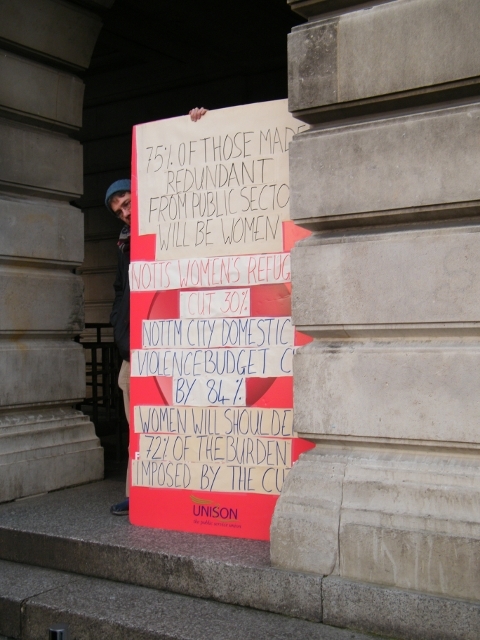 75% OF THOSE MADE
REDUNDANT
FROM PUBLIC SECTO
WILL BE WOMEN
NOTTS WOMEN'S REFUG
CUT 30%
NOTTM CITY DOMESTIC
VIOLENCE BUDGET C
BY 84%
WOMEN WILL SHOULDE
72% OF THE BURDEN
IMPOSED BY THE CU
UNISON
the public service union